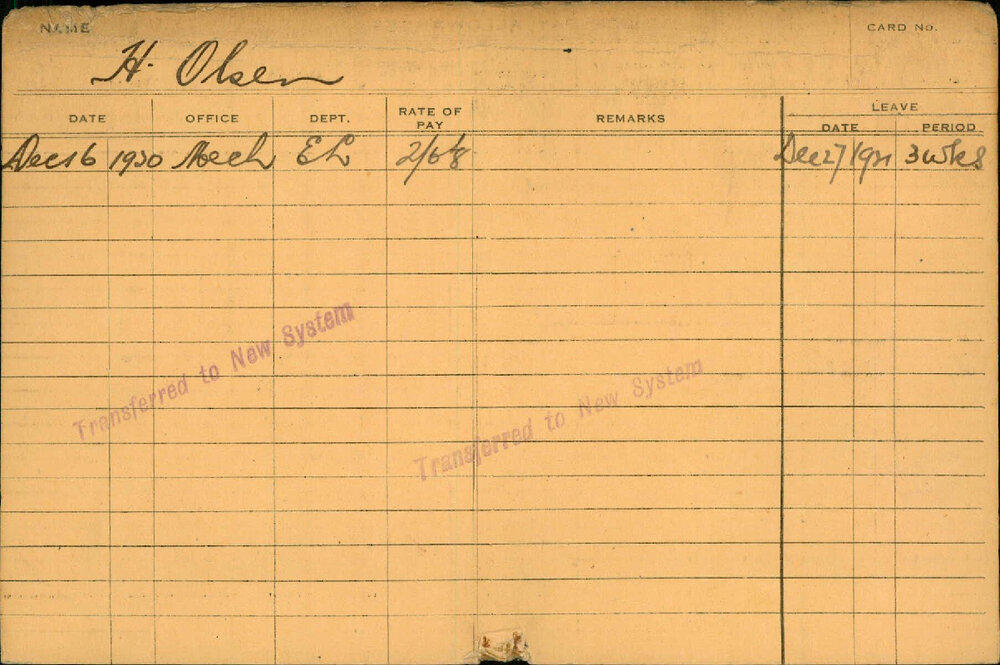 NAME
CARD No.
H. Olsen
DATE OFFICE DEPT. RATE OF PAY REMARKS LEAVE
DATE PERIOD
Dec 16 1920 Mech EL Dec 27 1921 3 wks
Transferred to New System
Transferred to New System